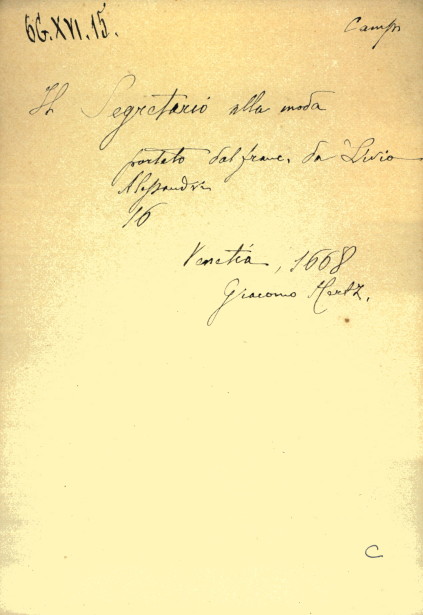 6G.XVI.15.
Camp
Il Segretario alla moda
portato dal franc. da Livio
Alessandri
16
Venetia, 1668
Giacomo Hertz.
C